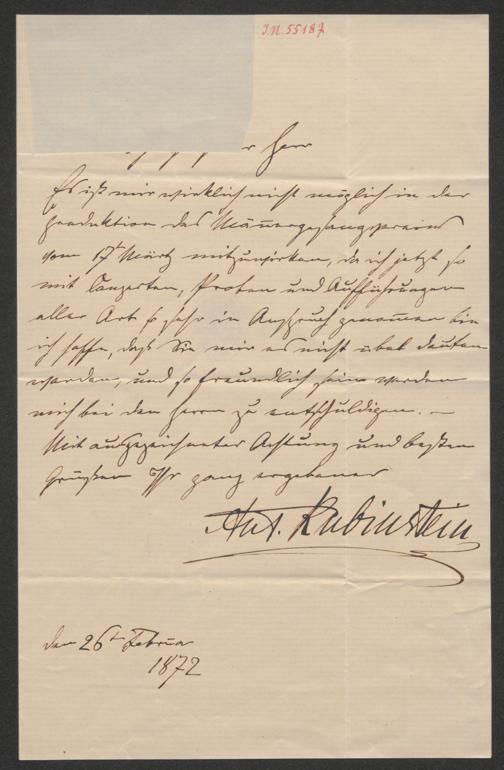 I.N. 55187
Herr
Es ist mir wirklich nicht möglich in der
Produktion des Männergesangvereins
vom 17t März mitzuwirken, da ich jetzt so
mit Conzerten, Proben und Aufführungen
aller Art so sehr in Anspruch genommen bin
ich hoffe, daß Sie mir es nicht übel deuten
werden, und so freundlich sein werden
mich bei den Herrn zu entschuldigen. —
Mit ausgezeichneter Achtung und besten
Grüßen Ihr ganz ergebener
Ant. Rubinstein
den 26t Februar
1872